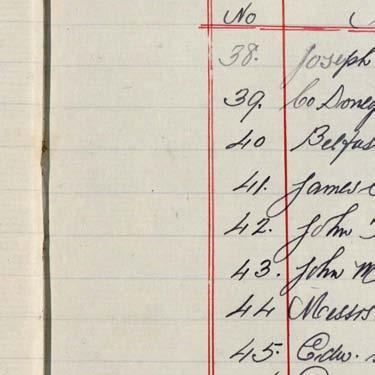 No
38. Joseph
39. Co Doneg
40 Belfas
41. James
42. John
43. John M
44 Messrs
45. Edw.